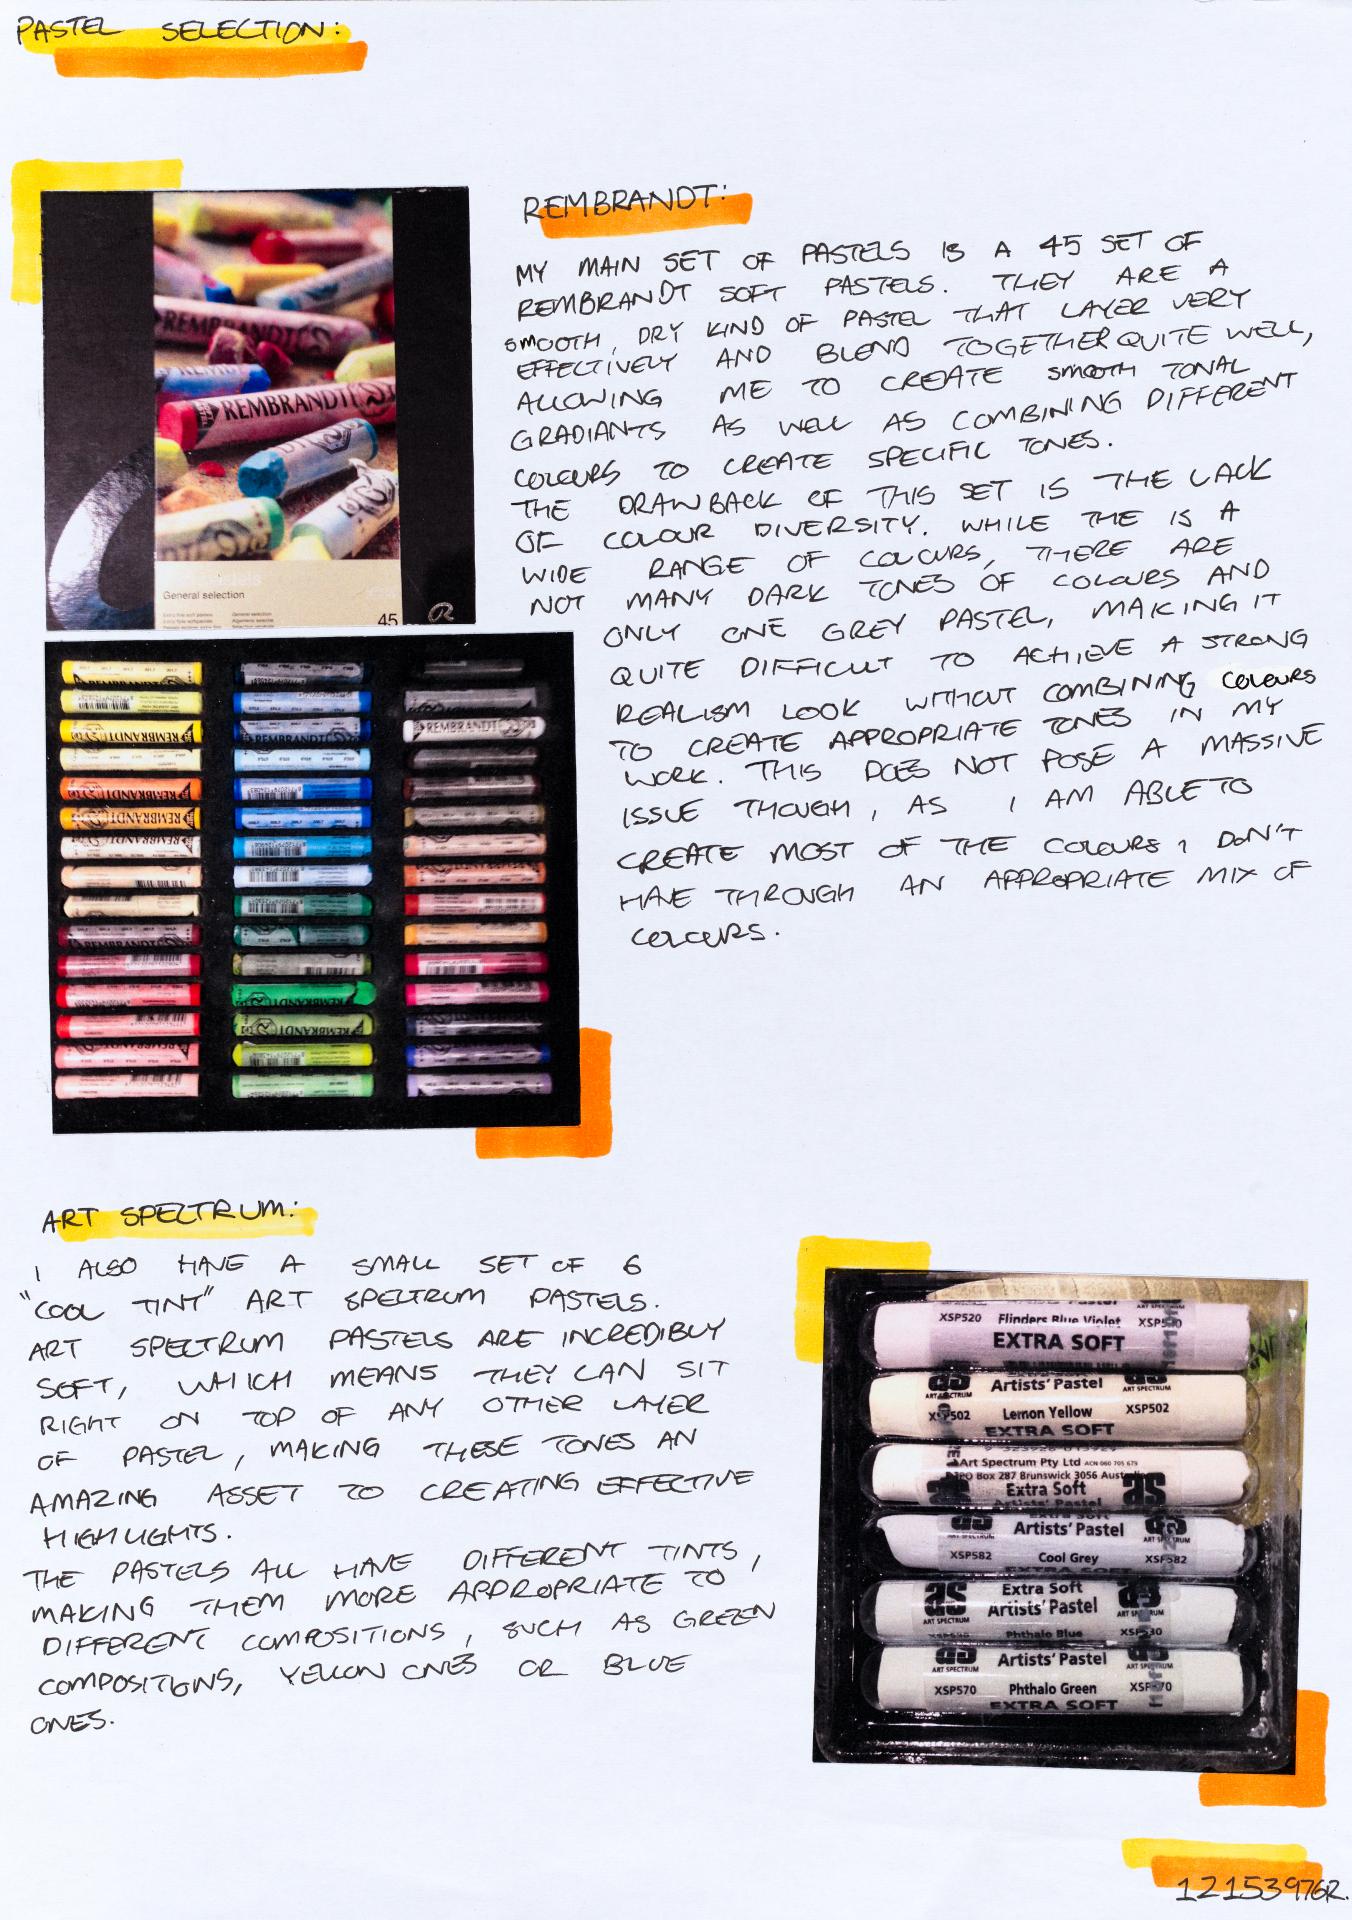 PASTEL SELECTION:
REMBRANDT:
MY MAIN SET OF PASTELS IS A 45 SET OF
REMBRANDT SOFT PASTELS. THEY ARE A
SMOOTH, DRY KIND OF PASTEL THAT LAYER VERY
EFFECTIVELY AND BLEND TOGETHER QUITE WELL,
ALLOWING ME TO CREATE SMOOTH TONAL
GRADIANTS AS WELL AS COMBINING DIFFERENT
COLOURS TO CREATE SPECIFIC TONES.
THE DRAWBACK OF THIS SET IS THE LACK
OF COLOUR DIVERSITY. WHILE THE IS A
WIDE RANGE OF COLOURS, THERE ARE
NOT MANY DARK TONES OF COLOURS AND
ONLY ONE GREY PASTEL, MAKING IT
QUITE DIFFICULT TO ACHIEVE A STRONG
REALISM LOOK WITHOUT COMBINING COLOURS
TO CREATE APPROPRIATE TONES IN MY
WORK. THIS DOES NOT POSE A MASSIVE
ISSUE THOUGH, AS I AM ABLE TO
CREATE MOST OF THE COLOURS I DON'T
HAVE THROUGH AN APPROPRIATE MIX OF
COLOURS.
REMBRANDT
REMBRANDT
General selection
45
REMBRANDT
REMBRANDT
REMBRANDT
REMBRANDT
REMBRANDT
REMBRANDT
REMBRANDT
REMBRANDT
REMBRANDT
REMBRANDT
REMBRANDT
ART SPECTRUM:
I ALSO HAVE A SMALL SET OF 6
"COOL TINT" ART SPECTRUM PASTELS.
ART SPECTRUM PASTELS ARE INCREDIBLY
SOFT, WHICH MEANS THEY CAN SIT
RIGHT ON TOP OF ANY OTHER LAYER
OF PASTEL, MAKING THESE TONES AN
AMAZING ASSET TO CREATING EFFECTIVE
HIGHLIGHTS.
THE PASTELS ALL HAVE DIFFERENT TINTS,
MAKING THEM MORE APPROPRIATE TO
DIFFERENT COMPOSITIONS, SUCH AS GREEN
COMPOSITIONS, YELLOW ONES OR BLUE
ONES.
XSP520 Flinders Blue Violet
EXTRA SOFT
as Artists' Pastel as
ART SPECTRUM
XSP502 Lemon Yellow XSP502
EXTRA SOFT
Art Spectrum Pty Ltd ACN 060 705 679
PO Box 287 Brunswick 3056
Extra Soft as
Artists' Pastel
XSP582 Cool Grey XSP582
as Extra Soft
Artists' Pastel
ART SPECTRUM
Phthalo Blue
as Artists' Pastel
ART SPECTRUM
XSP570 Phthalo Green
EXTRA SOFT
12153976R.